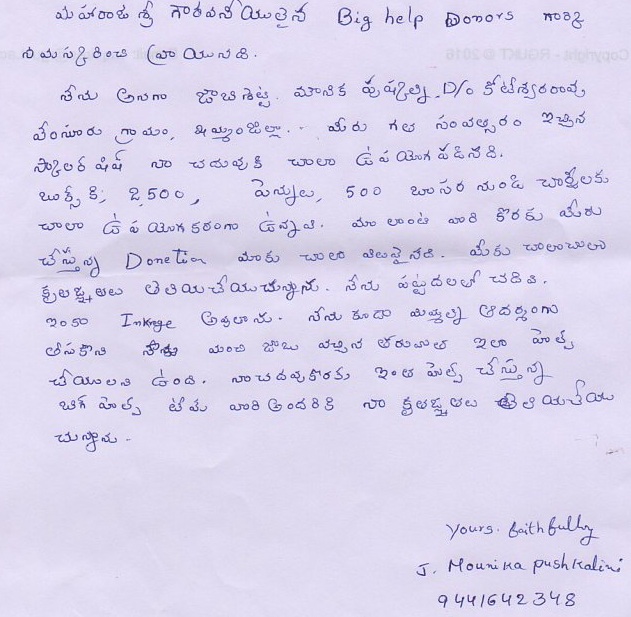 మహారాజ శ్రీ గౌరవనీయులైన Big help Donors గార్కి
నమస్కరించి వ్రాయునది.
నేను అనగా జాబిశెట్టి. మౌనిక పుష్కలిని, D/o కోటేశ్వరరావు
వేంసూరు గ్రామం, ఖమ్మంజిల్లా.. మీరు గత సంవత్సరం ఇచ్చిన
స్కాలర్ షిప్ నా చదువుకి చాలా ఉపయోగపడినది.
బుక్స్ కి, 2,500, పెన్నులు, 500 బాసర నుండి చార్జీలకు
చాలా ఉపయోగకరంగా ఉన్నవి. మా లాంటి వారి కొరకు మీరు
చేస్తున్న Donetion మాకు చాలా విలువైనది. మీకు చాలాచాలా
కృతజ్ఞతలు తెలియచేయుచున్నాను. నేను పట్టుదలలో చదివి.
ఇంకా Inkrge అవుతాను. నేను కూడా మిమ్మల్ని ఆదర్శంగా
తీసుకొని నాకు మంచి జాబు వచ్చిన తరువాత ఇలా హెల్ప్
చేయాలని ఉంది. నాచదువుకొరకు ఇంత హెల్ప్ చేస్తున్న
బిగ్ హెల్ప్ టీము వారి అందరికి నా కృతజ్ఞతలు తెలియచేయు
చున్నాను.
Yours. faithfully
J. Mounika pushkalini
9441642348